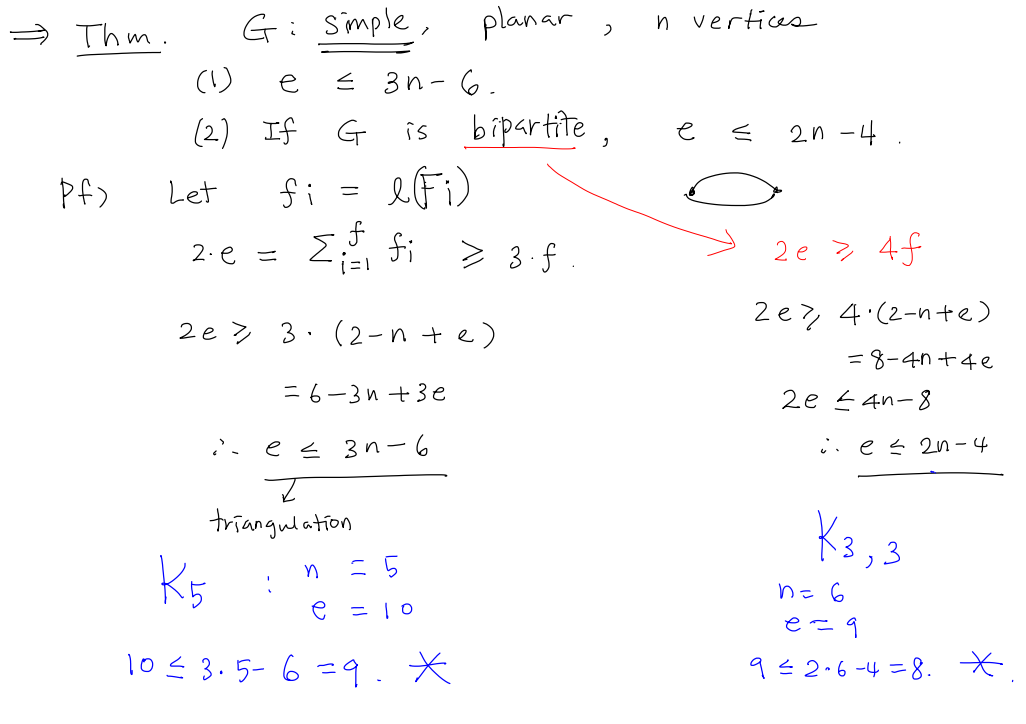 ⇒ Thm. G: simple, planar, n vertices
(1) e ≤ 3n-6.
(2) If G is bipartite, e ≤ 2n-4.
Pf) Let fi = l(Fi)
2·e = Σ_{i=1}^{f} fi ≥ 3·f.
2e ≥ 3·(2-n+e)
= 6-3n+3e
∴ e ≤ 3n-6
triangulation
K5 : n = 5
e = 10
10 ≤ 3·5-6 = 9. ※
2e ≥ 4f
2e ≥ 4·(2-n+e)
= 8-4n+4e
2e ≤ 4n-8
∴ e ≤ 2n-4
K3,3
n = 6
e = 9
9 ≤ 2·6-4 = 8. ※.